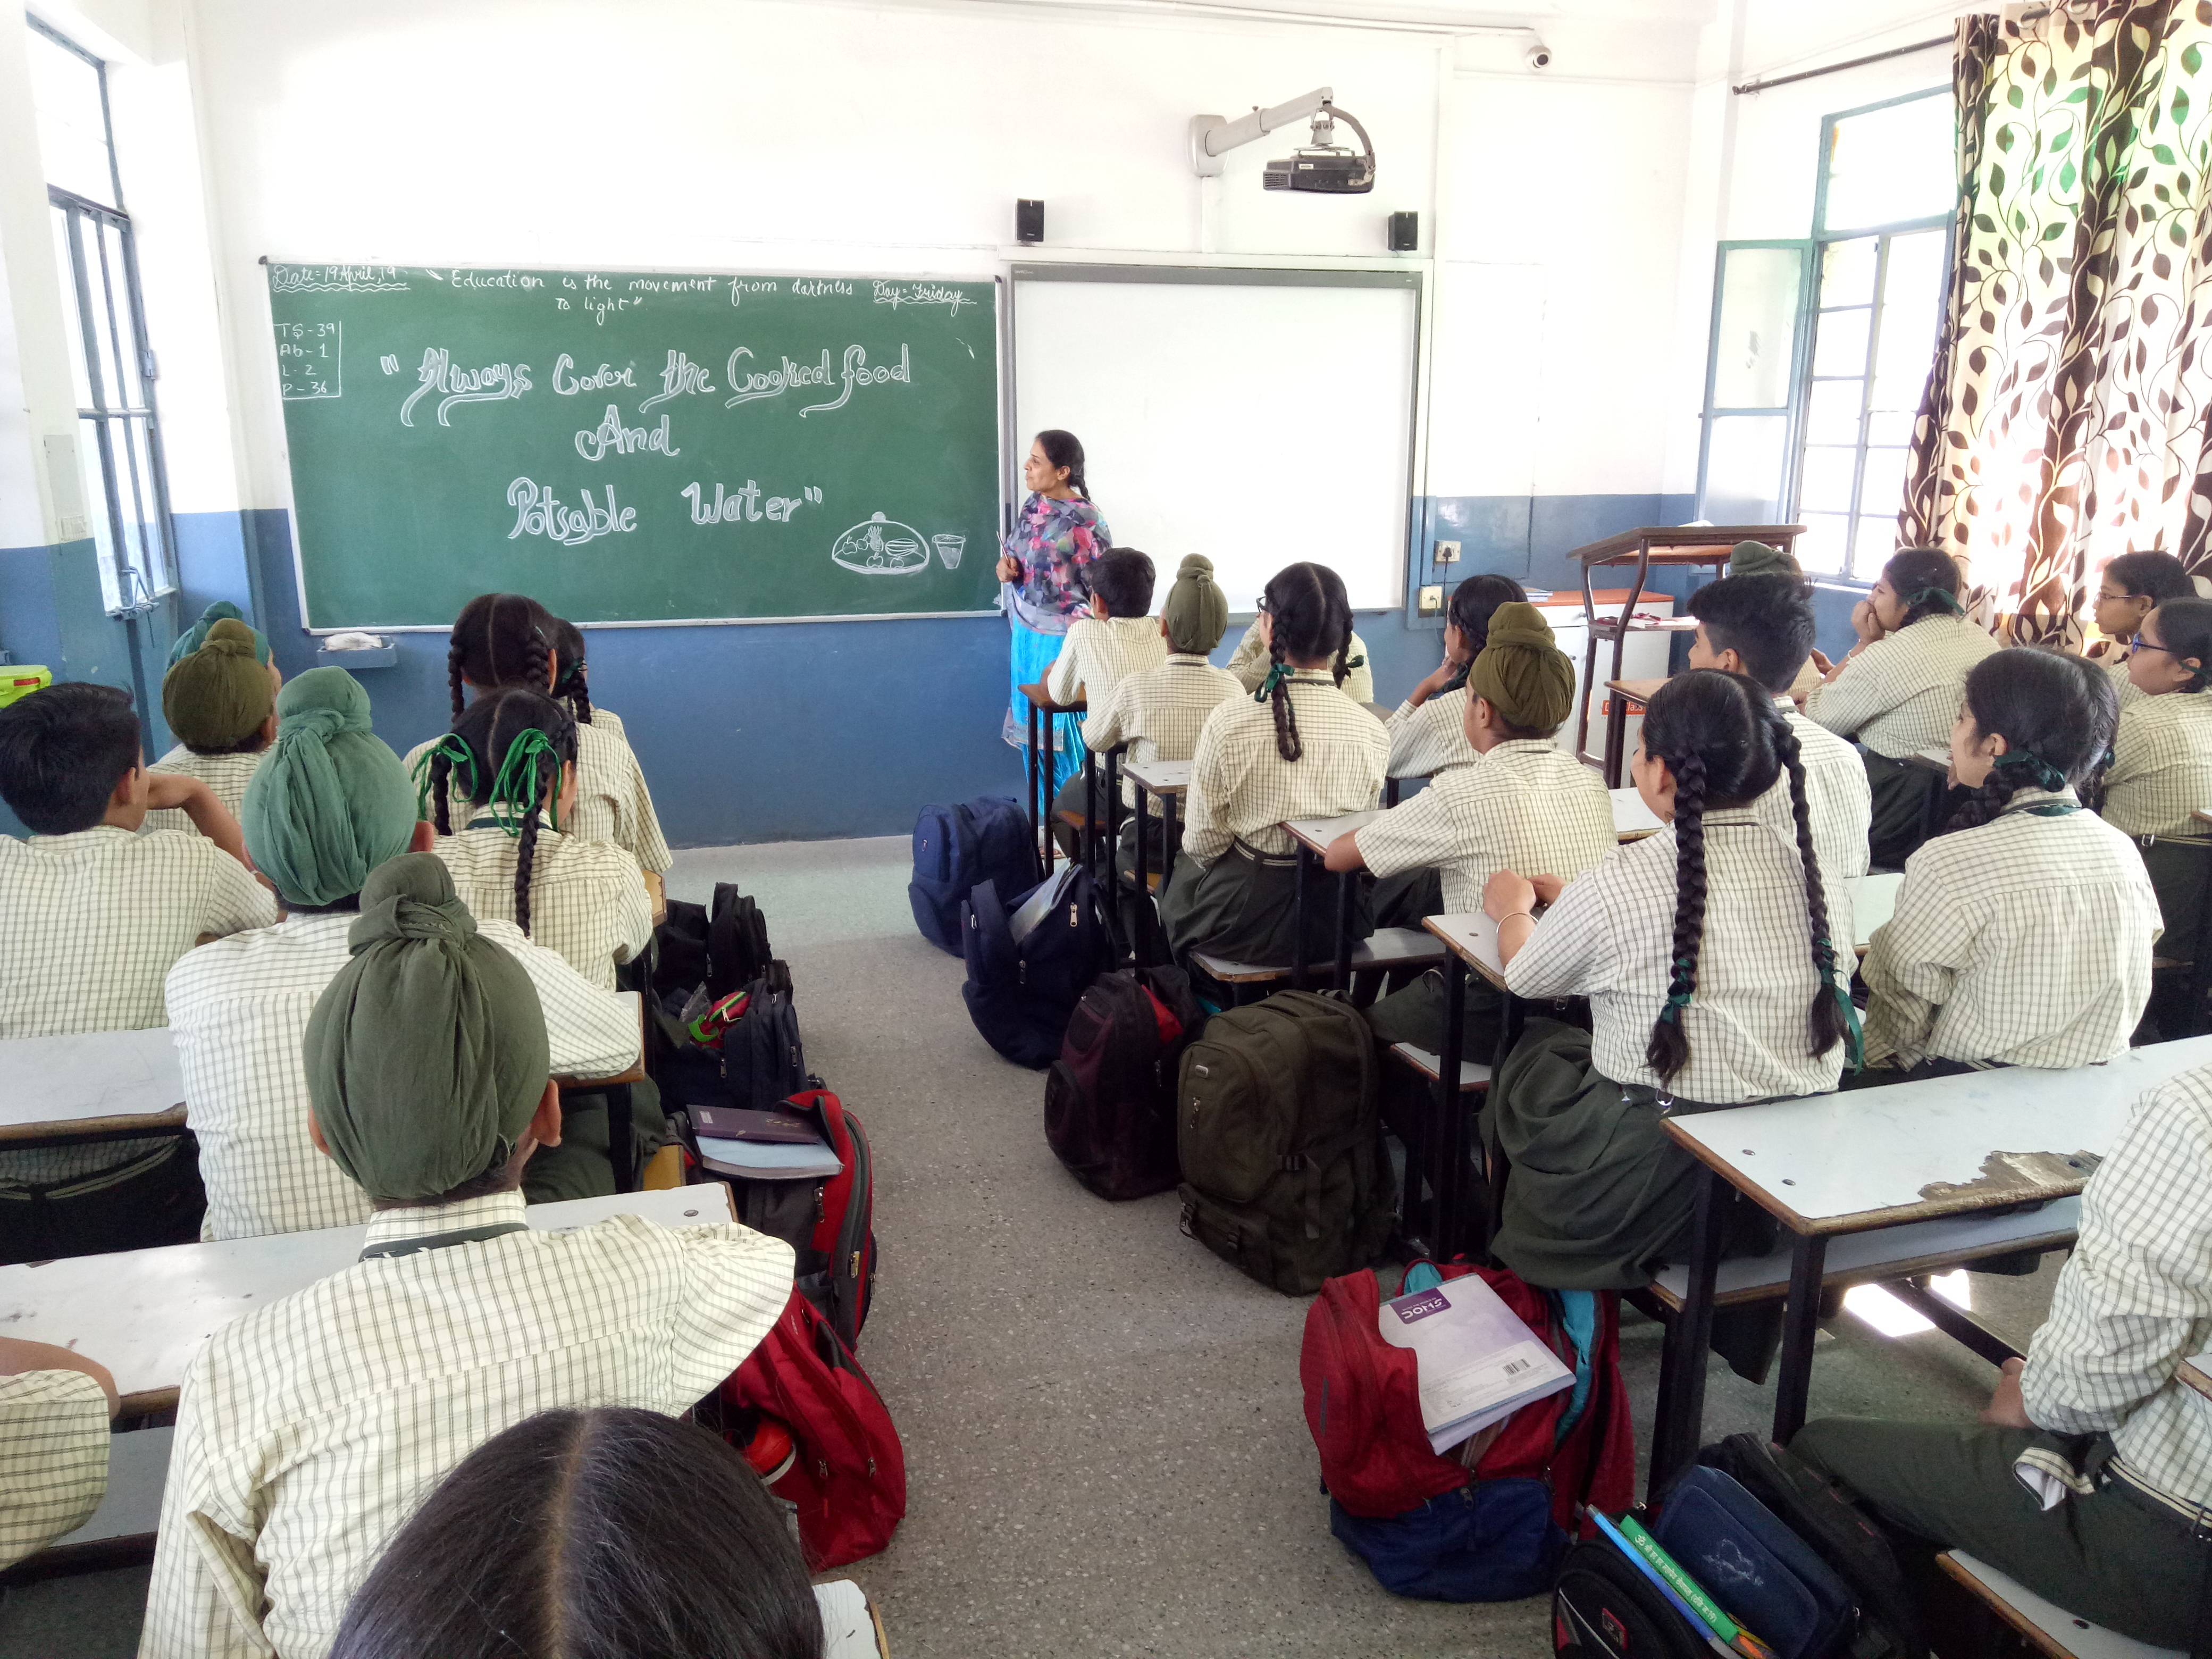 Date = 19 April, 19
" Education is the movement from darkness
to light"
Day = Friday
TS - 39
Ab - 1
L - 2
P - 36
"Always Cover the Cooked food
And
Potsable Water"